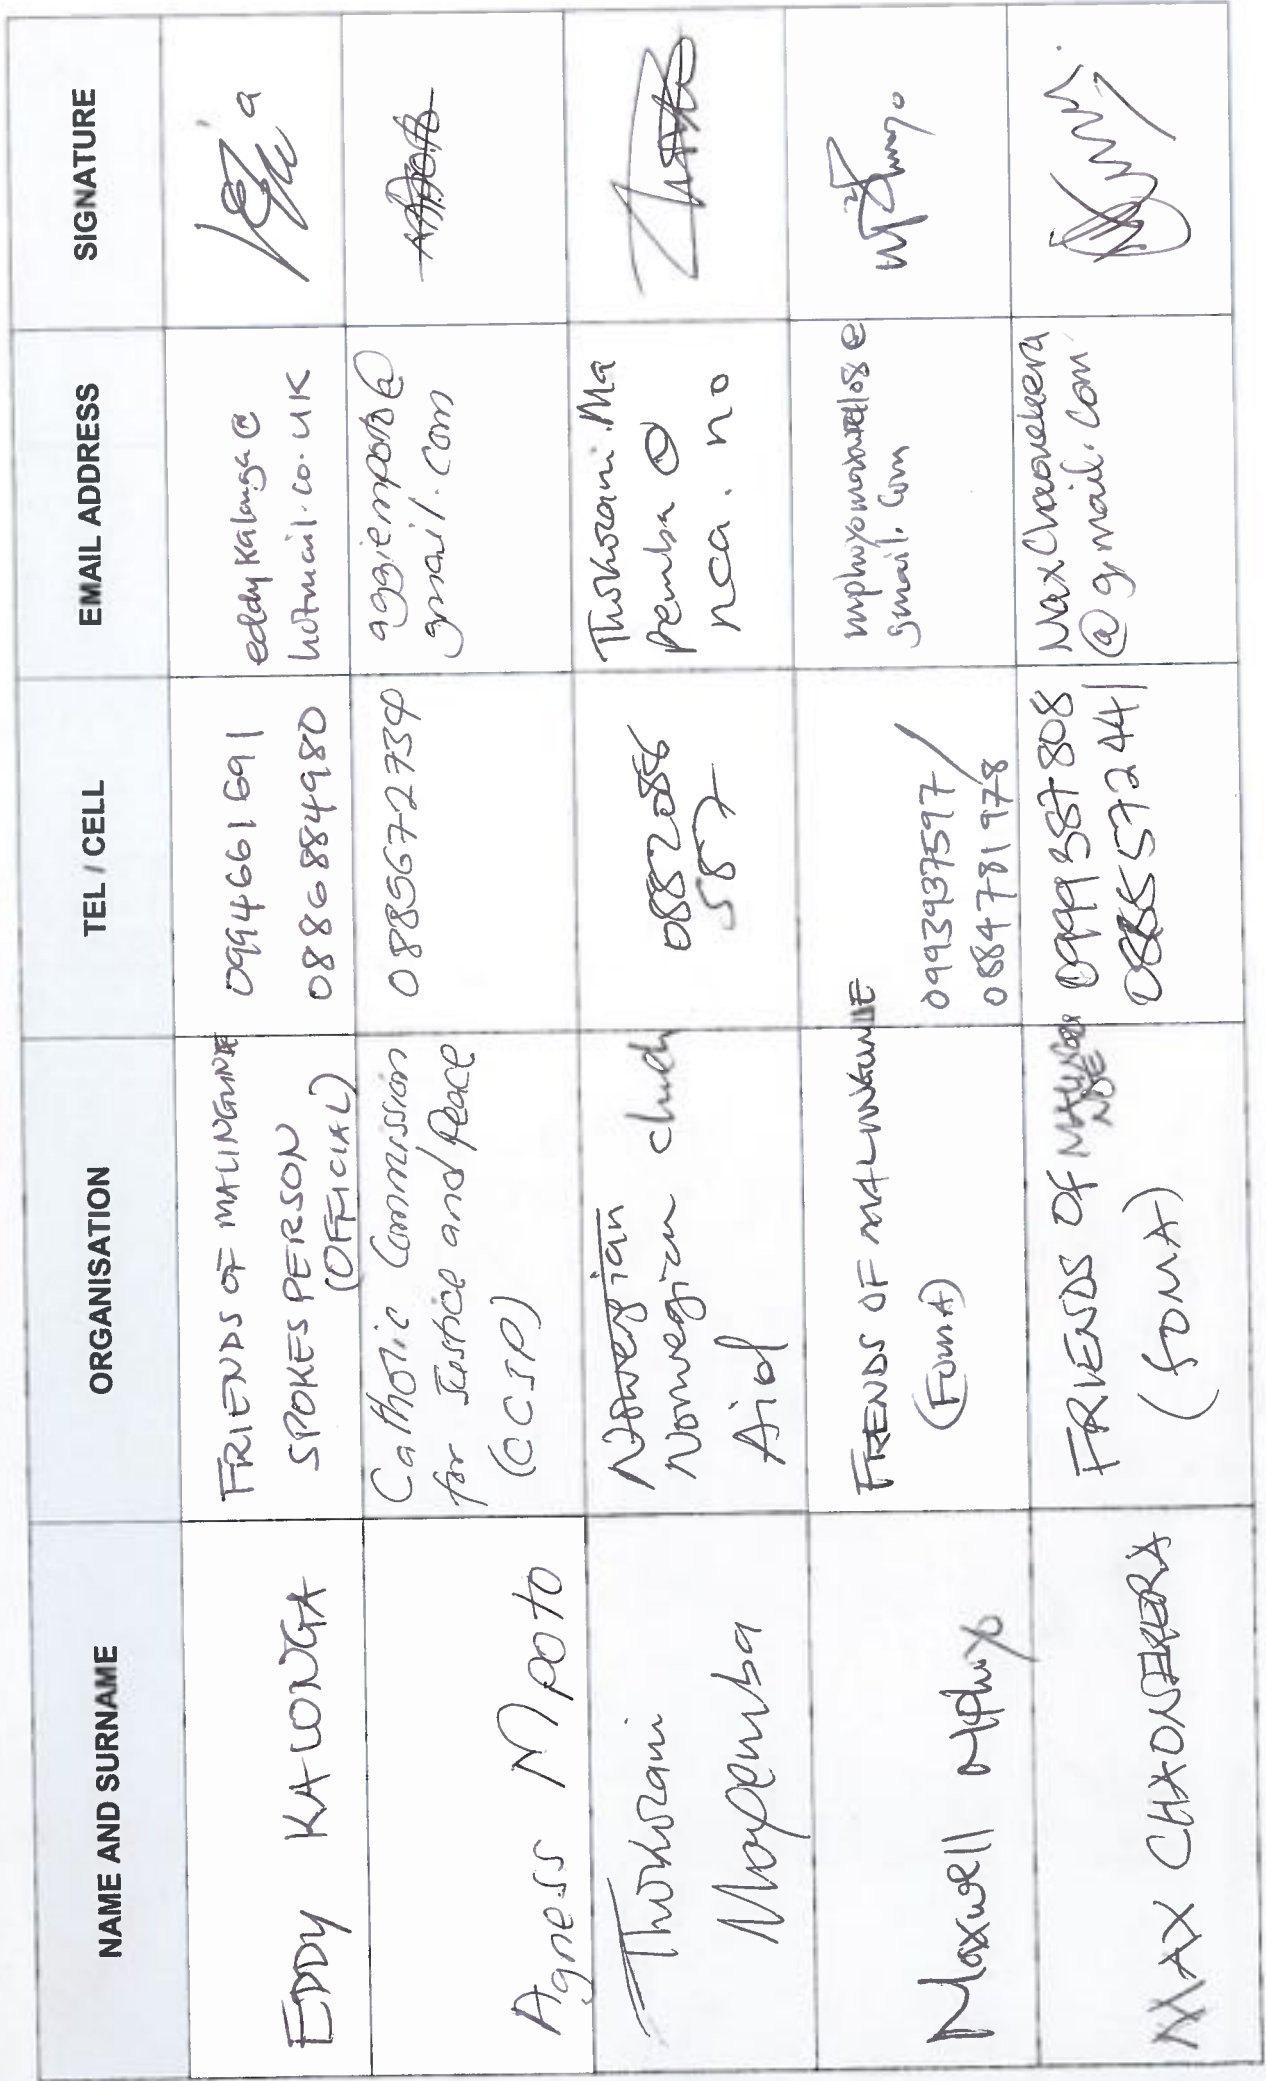 NAME AND SURNAME
ORGANISATION
TEL / CELL
EMAIL ADDRESS
SIGNATURE
EDDY KALONGA
FRIENDS OF MALINGUNDE
SPOKES PERSON
(OFFICIAL)
0994661691
0886884980
eddykalonga@
hotmail.co.uk
Agness Mpoto
Catholic Commission
for Justice and Peace
(CCJP)
0885672734
aggiempoto@
gmail.com
Thokozani
Mapemba
Norwegian
Norwegian church
Aid
0882086
587
Thokozani.Ma
pemba@
nca.no
Maxwell Mphwiyo
FRIENDS OF MALINGUNDE
(FOMA)
0993937597/
0884781978
gmail.com
MAX CHAONEKERA
FRIENDS OF
(FOMA)
0999387808
0885572441
MaxChaonekera
@gmail.com